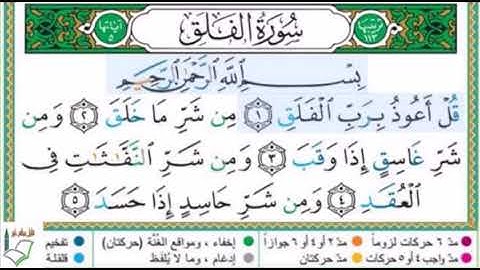 آياتها ٥ سُورَةُ الفَلَقِ رتيبها ١١٣
بِسْمِ اللَّهِ الرَّحْمَٰنِ الرَّحِيمِ
قُلْ أَعُوذُ بِرَبِّ الْفَلَقِ ١ مِن شَرِّ مَا خَلَقَ ٢ وَمِن
شَرِّ غَاسِقٍ إِذَا وَقَبَ ٣ وَمِن شَرِّ النَّفَّٰثَٰتِ فِى
الْعُقَدِ ٤ وَمِن شَرِّ حَاسِدٍ إِذَا حَسَدَ ٥
مدّ ٦ حركات لزوماً مدّ ٢ أو ٤ أو ٦ جوازاً إخفاء ، ومواقع الغُنَّة (حركتان) تفخيم
مدّ واجب ٤ أو ٥ حركات مدّ حركتان إدغام ، وما لا يُلفَظ قلقلة